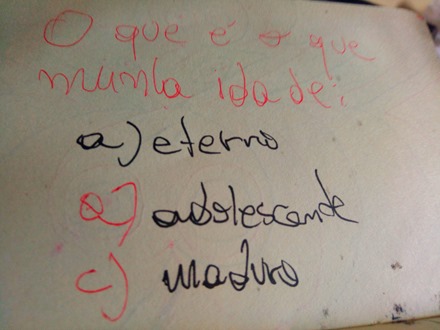 O que é o que
munla idade:
a) eterno
a) adolescande
c) maduro